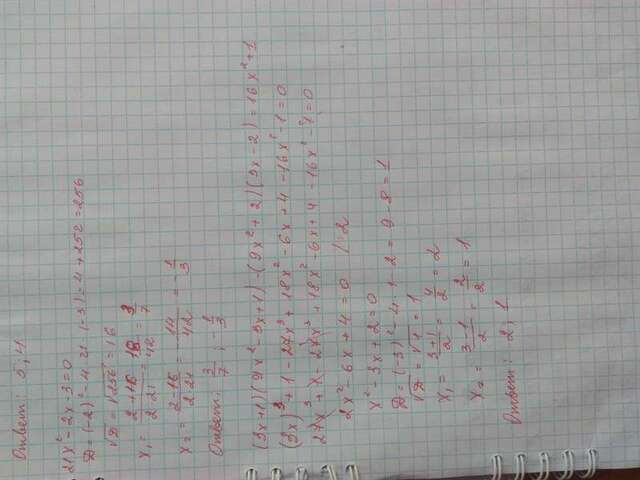 Ответ: 5; 4
21x² - 2x - 3 = 0
D = (-2)² - 4·21·(-3) = 4 + 252 = 256
√D = √256 = 16
x₁ = (2+16)/(2·21) = 18/42 = 3/7
x₂ = (2-16)/(2·21) = -14/42 = -1/3
Ответ: 3/7; -1/3
(3x+1)(9x² - 3x + 1) - (9x² + 2)(3x - 2) = 16x² + 1
(3x)³ + 1 - 27x³ + 18x² - 6x + 4 - 16x² - 1 = 0
27x³ + 1 - 27x³ + 18x² - 6x + 4 - 16x² - 1 = 0
2x² - 6x + 4 = 0 /:2
x² - 3x + 2 = 0
D = (-3)² - 4·1·2 = 9 - 8 = 1
√D = √1 = 1
x₁ = (3+1)/2 = 4/2 = 2
x₂ = (3-1)/2 = 2/2 = 1
Ответ: 2; 1